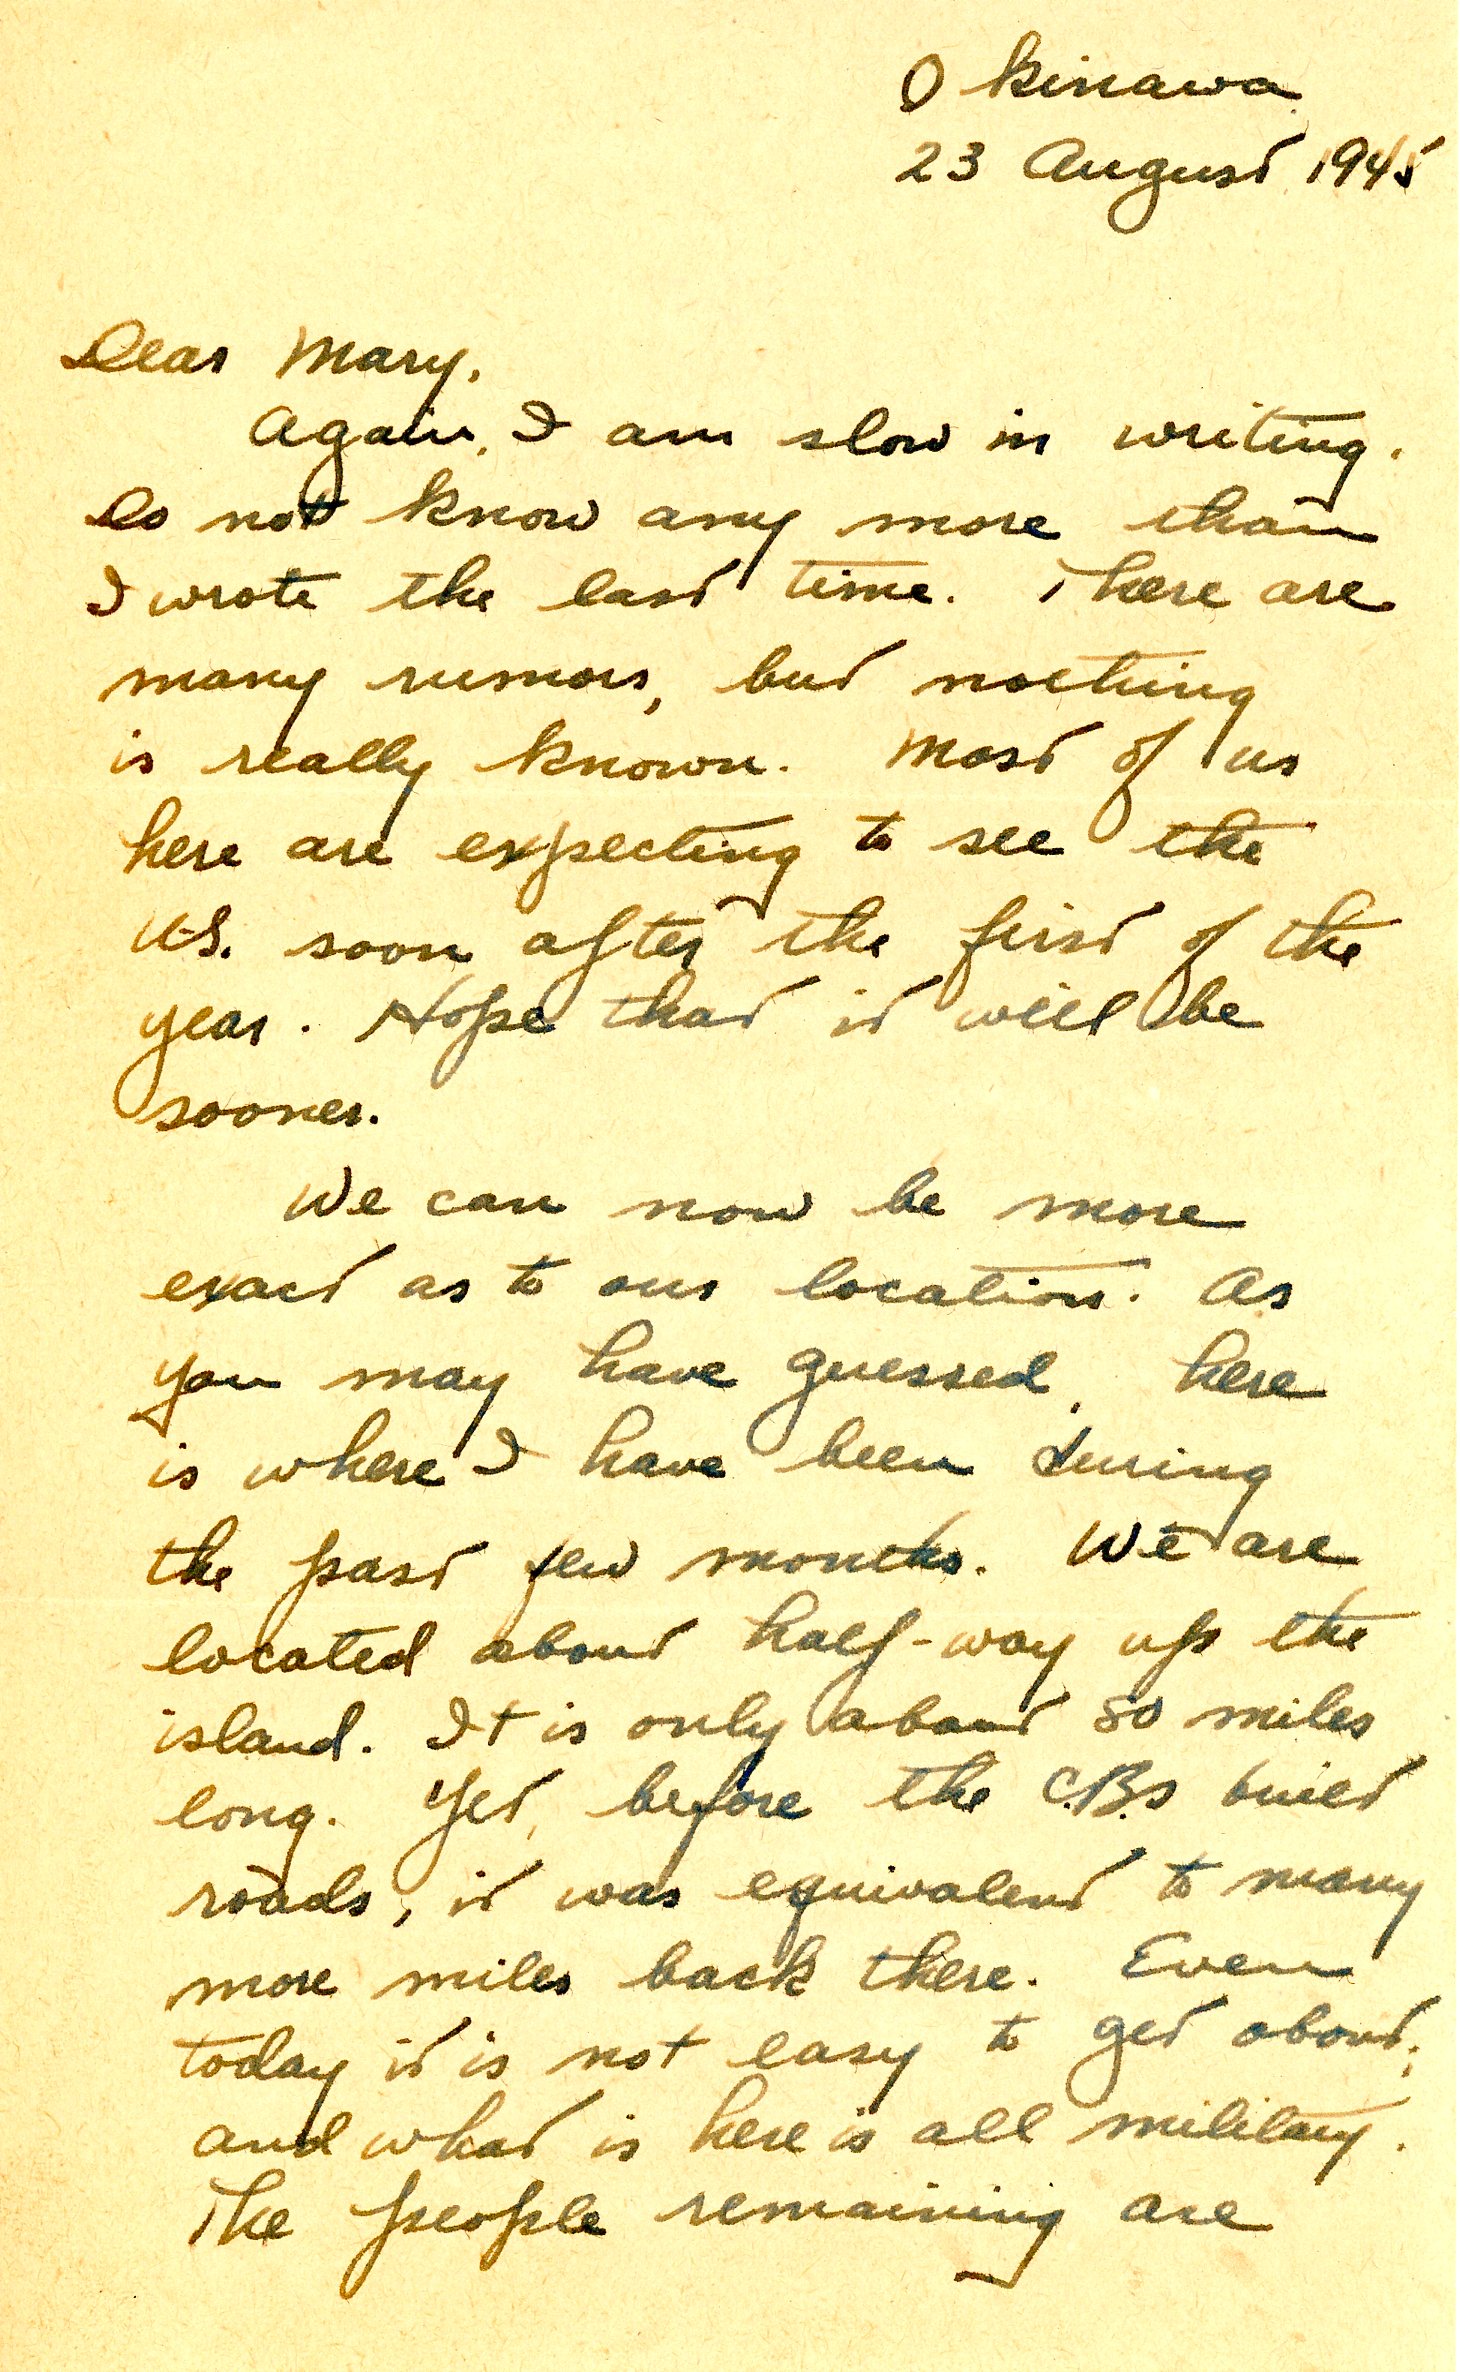 Okinawa
23 August 1945
Dear Mary,
Again, I am slow in writing.
Do not know any more than
I wrote the last time. There are
many rumors, but nothing
is really known. Most of us
here are expecting to see the
U.S. soon after the first of the
year. Hope that it will be
sooner.
We can now be more
exact as to our location. As
you may have guessed, here
is where I have been during
the past few months. We are
located about half-way up the
island. It is only about 50 miles
long. Yet, before the C.B.s built
roads, it was equivalent to many
more miles back there. Even
today it is not easy to get about;
and what is here is all military.
The people remaining are